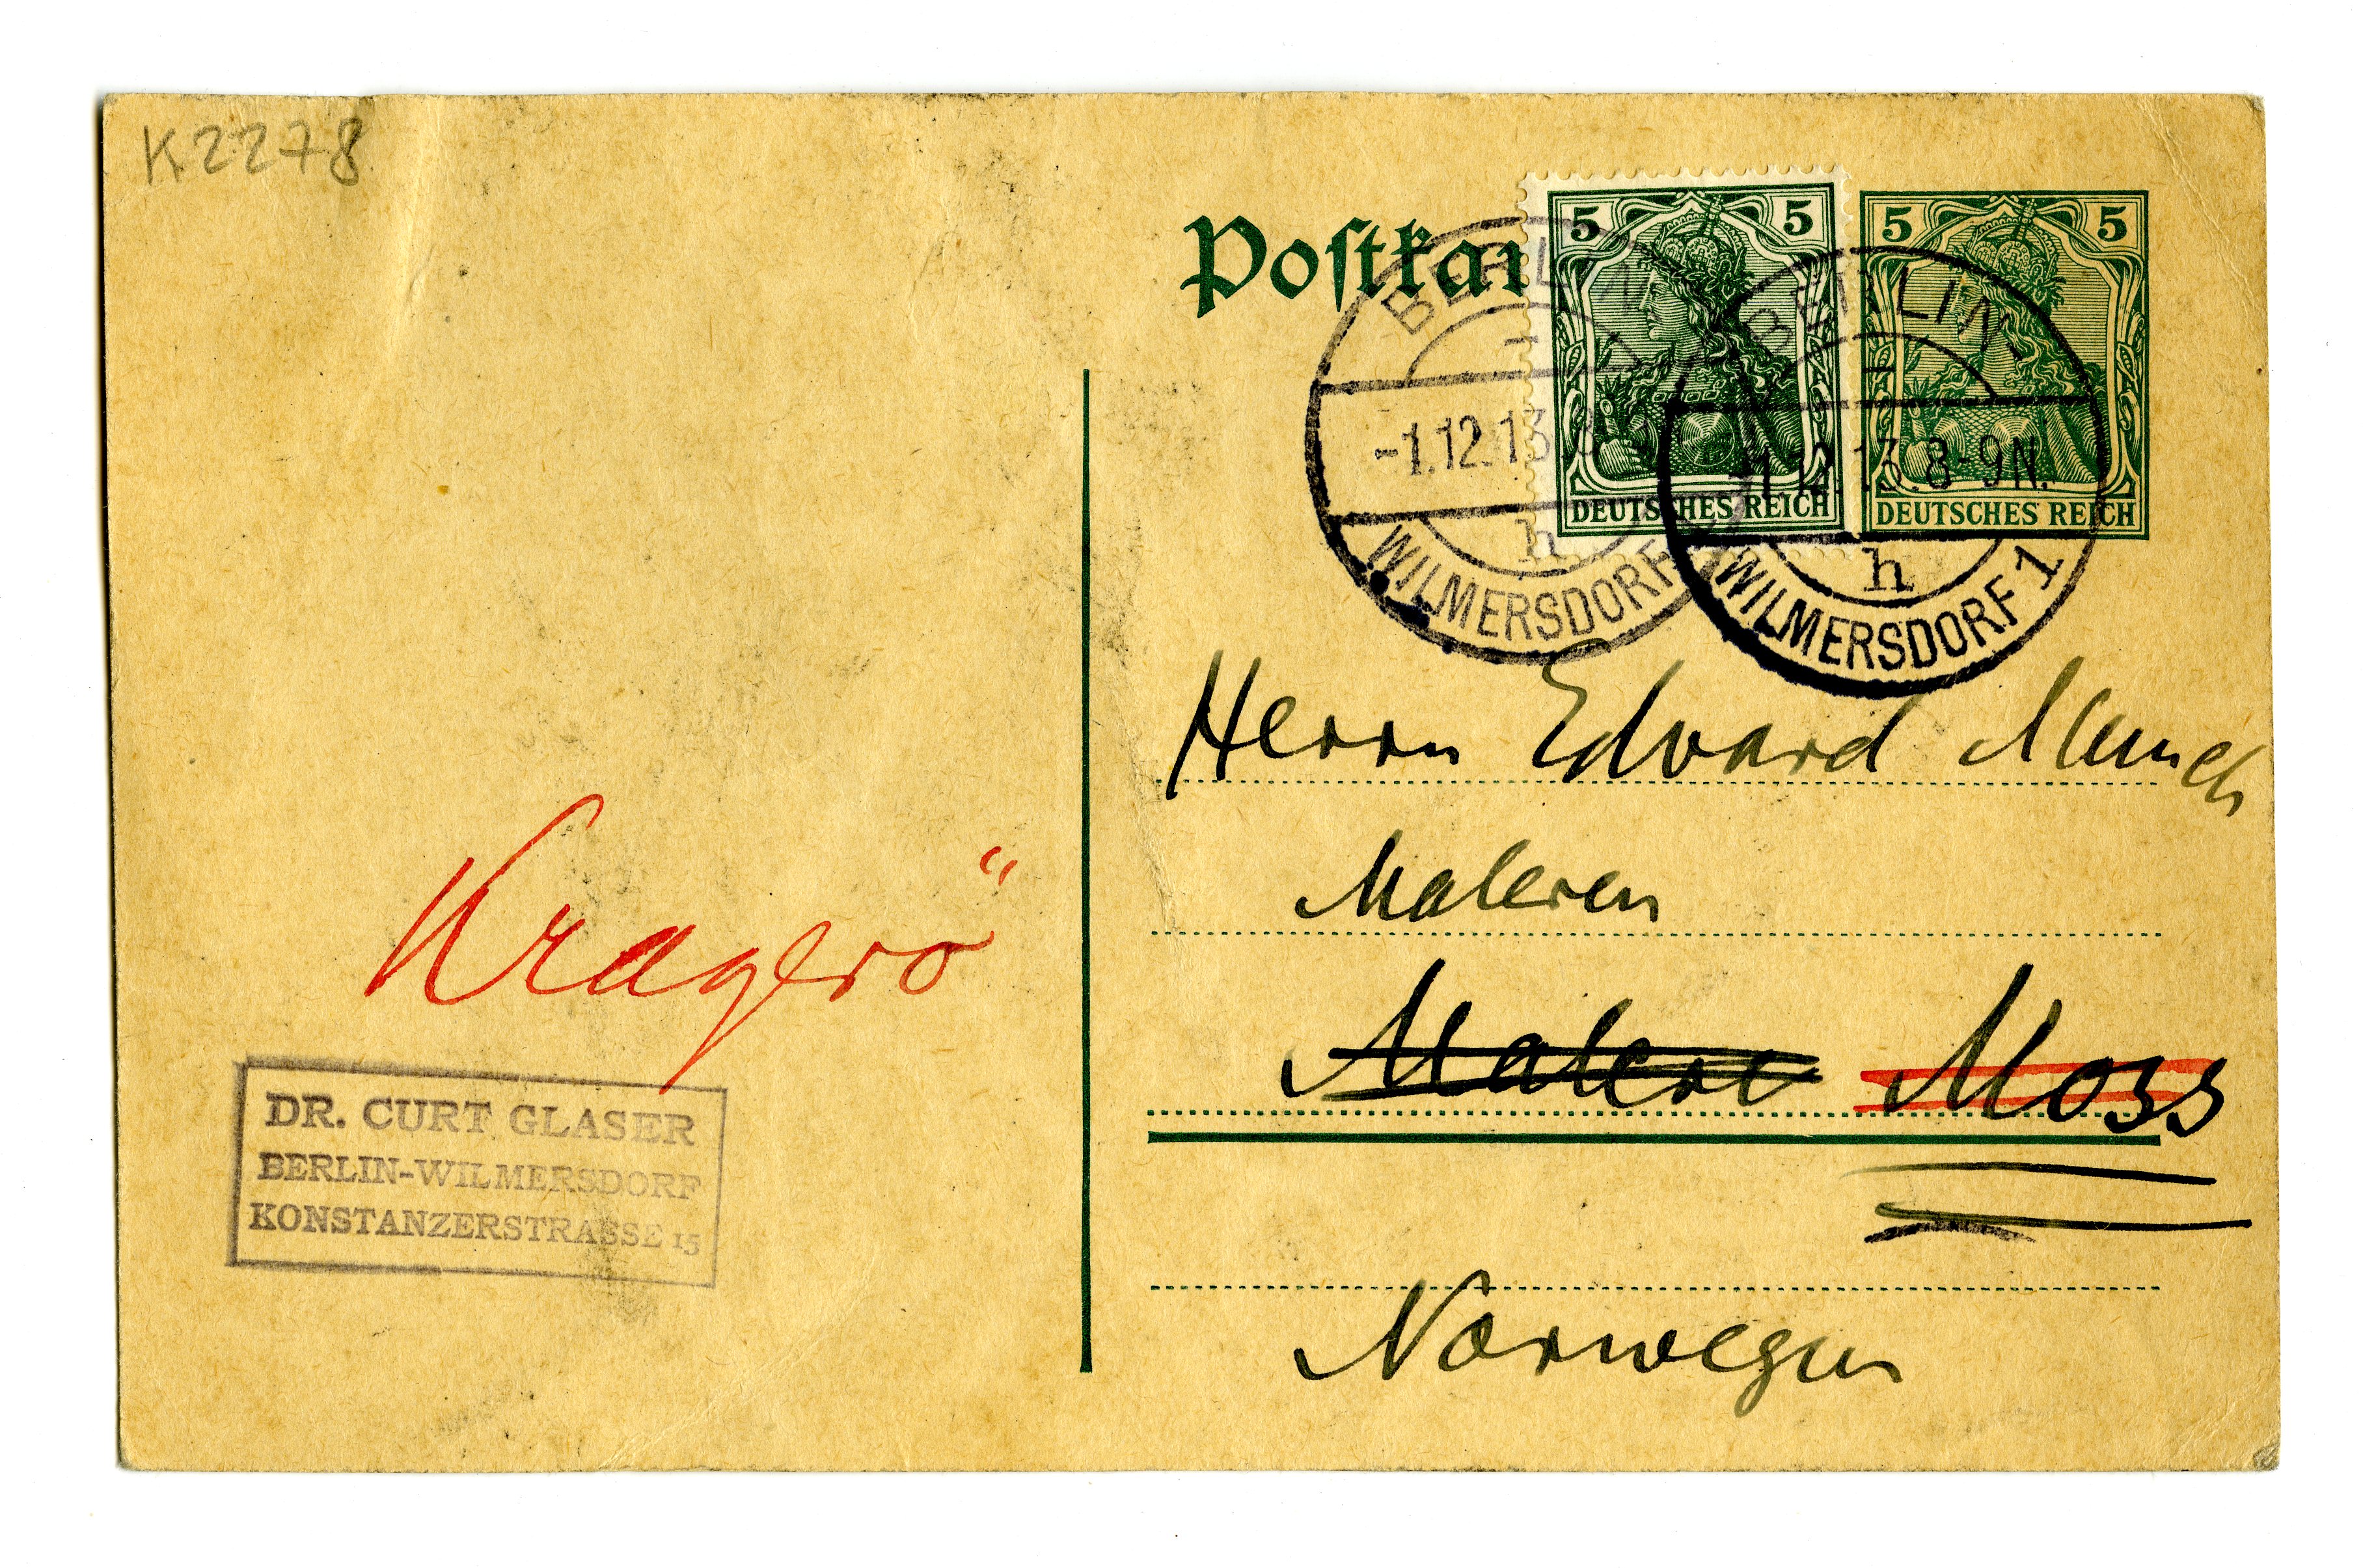 K2278
Postkar
5 5
DEUTSCHES REICH
5 5
DEUTSCHES REICH
BERLIN
-1.12.13. 8
h
WILMERSDORF
BERLIN-
-1.12.13. 8-9N.
h
WILMERSDORF 1
Herrn Edvard Munch
Maleren
Malere Moss
Norwegen
Kragerö
DR. CURT GLASER
BERLIN-WILMERSDORF
KONSTANZERSTRASSE 15